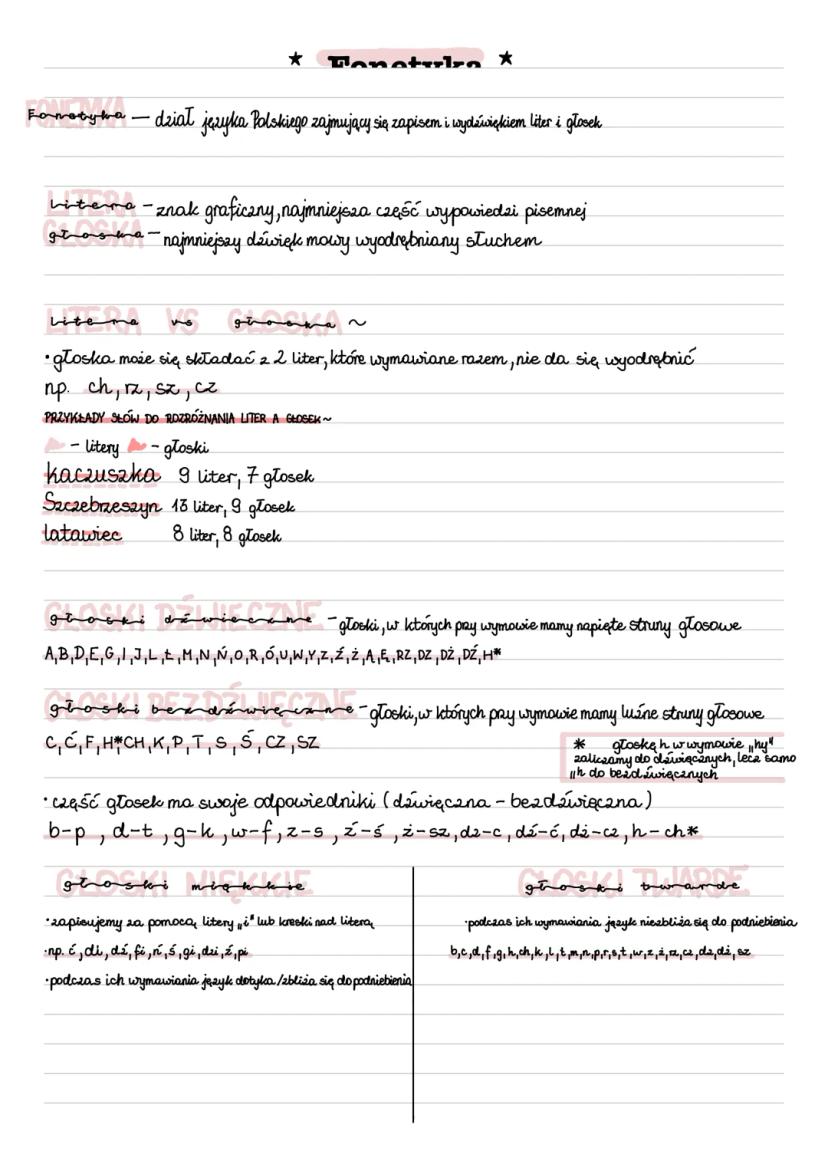 ★ Fonetyka ★
Fonetyka — dział języka Polskiego zajmujący się zapisem i wydźwiękiem liter i głosek
litera - znak graficzny, najmniejsza część wypowiedzi pisemnej
głoska - najmniejszy dźwięk mowy wyodrębniany słuchem
litera vs głoska ~
• głoska może się składać z 2 liter, które wymawiane razem, nie da się wyodrębnić
np. ch, rz, sz, cz
PRZYKŁADY SŁÓW DO ROZRÓŻNANIA LITER A GŁOSEK~
- litery - głoski
kaczuszka 9 liter, 7 głosek
Szczebrzeszyn 13 liter, 9 głosek
latawiec 8 liter, 8 głosek
głoski dźwięczne - głoski, w których przy wymowie mamy napięte struny głosowe
A, B, D, E, G, I, J, L, Ł, M, N, Ń, O, R, Ó, U, W, Y, Z, Ź, Ż, Ą, Ę, RZ, DZ, DŻ, DŹ, H*
głoski bezdźwięczne - głoski, w których przy wymowie mamy luźne struny głosowe
C, Ć, F, H* CH, K, P, T, S, Ś, CZ, SZ
* głoskę h w wymowie „hy"
zaliczamy do dźwięcznych, lecz samo
„h do bezdźwięcznych
• część głosek ma swoje odpowiedniki (dźwięczna - bezdźwięczna)
b-p, d-t, g-k, w-f, z-s, ź-ś, ż-sz, dz-c, dź-ć, dż-cz, h-ch*
głoski miękkie
• zapisujemy za pomocą litery „i" lub kreski nad literą
• np. ć, di, dź, fi, ń, ś, gi, dzi, ź, pi
• podczas ich wymawiania język dotyka/zbliża się do podniebienia
głoski twarde
• podczas ich wymawiania język niezbliża się do podniebienia
b, c, d, f, g, h, ch, k, l, ł, m, n, p, r, s, t, w, z, ż, rz, cz, dz, dż, sz